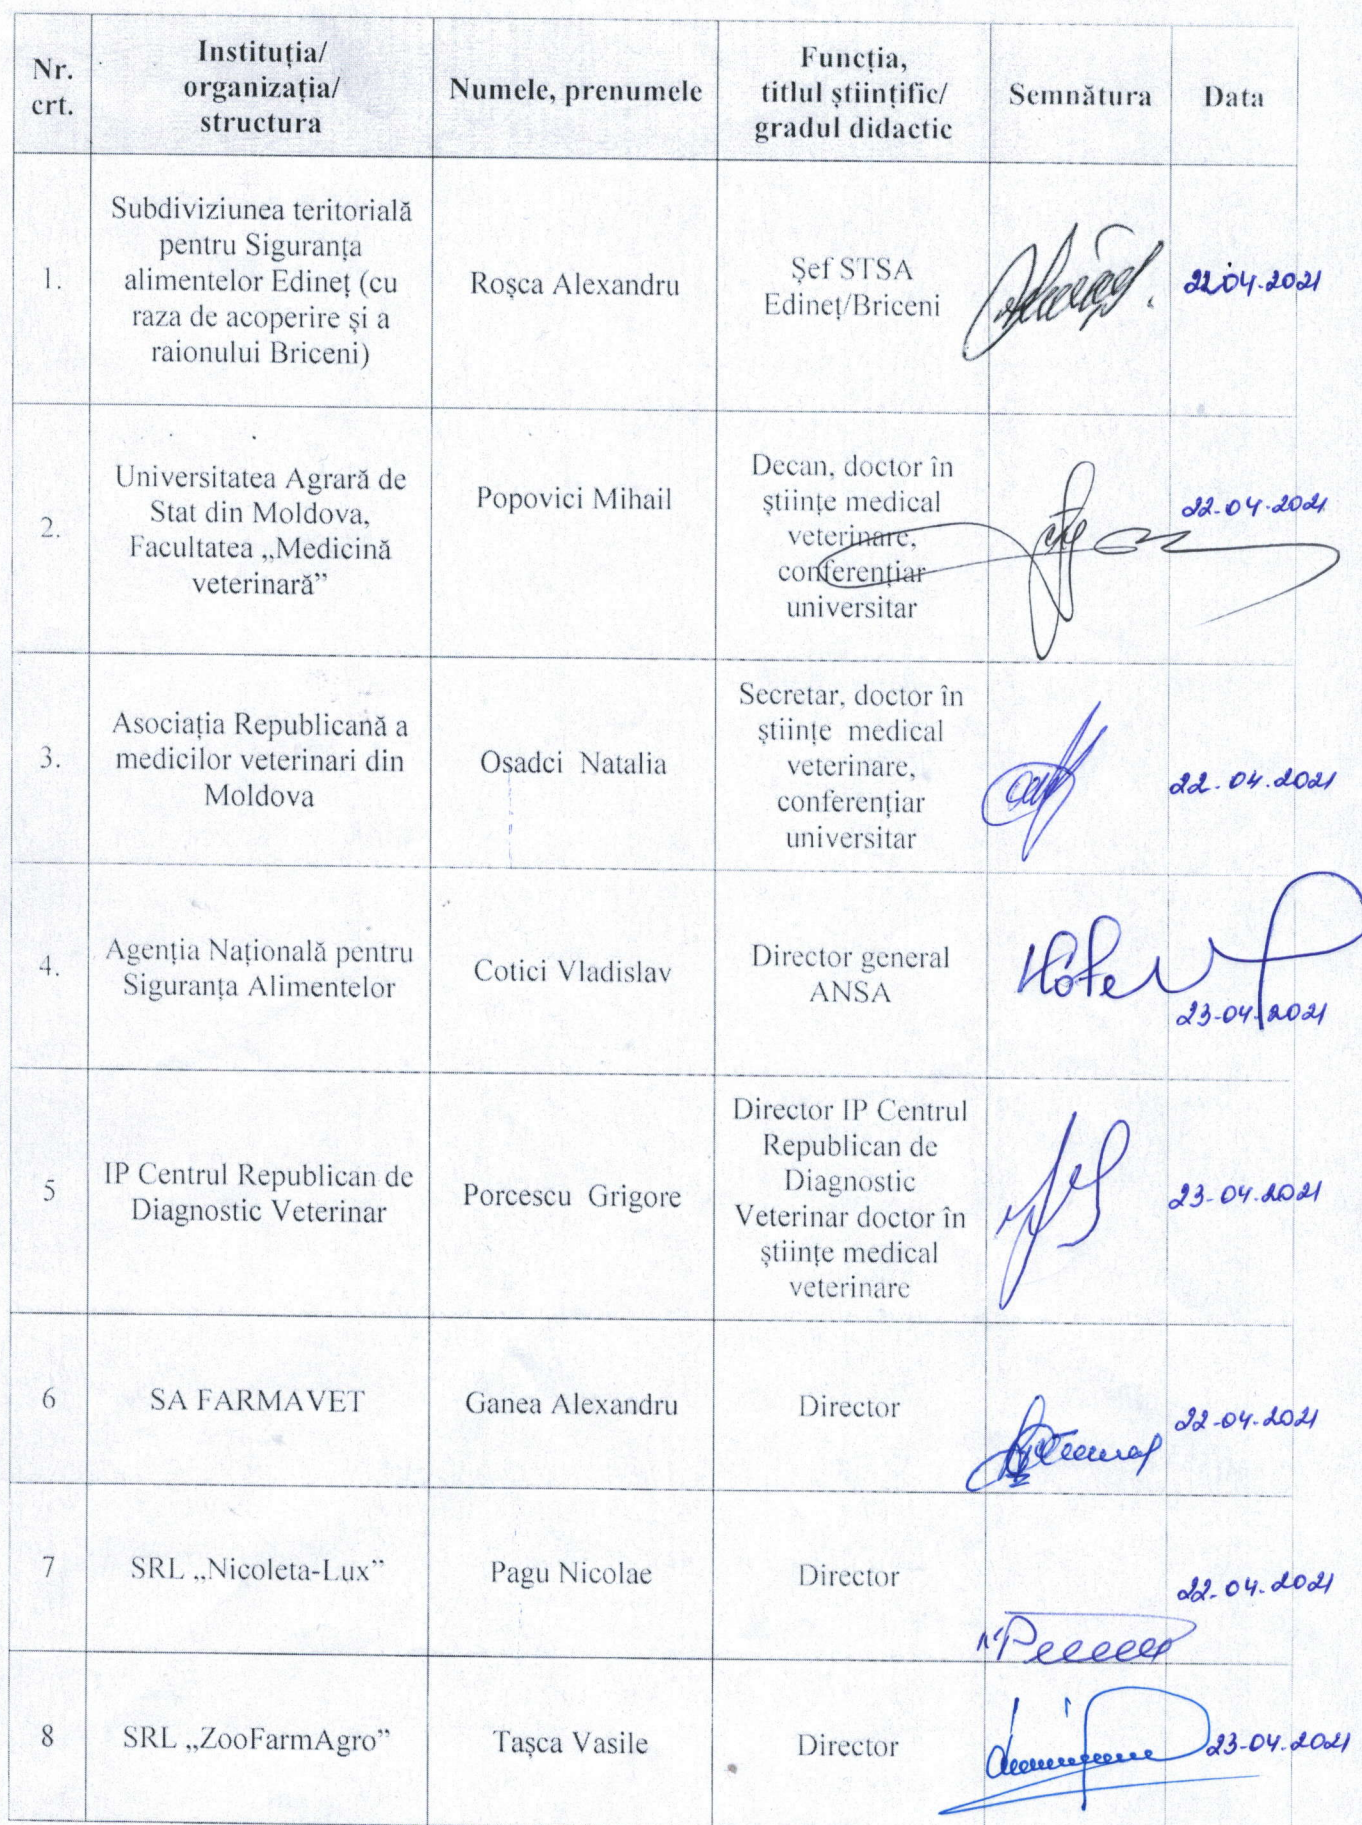 Nr.
crt.
Instituția/
organizația/
structura
Numele, prenumele
Funcția,
titlul științific/
gradul didactic
Semnătura
Data
1.
Subdiviziunea teritorială
pentru Siguranța
alimentelor Edineț (cu
raza de acoperire și a
raionului Briceni)
Roșca Alexandru
Șef STSA
Edineț/Briceni
22.04.2021
2.
Universitatea Agrară de
Stat din Moldova,
Facultatea „Medicină
veterinară”
Popovici Mihail
Decan, doctor în
științe medical
veterinare,
conferențiar
universitar
22.04.2021
3.
Asociația Republicană a
medicilor veterinari din
Moldova
Osadci Natalia
Secretar, doctor în
științe medical
veterinare,
conferențiar
universitar
22.04.2021
4.
Agenția Națională pentru
Siguranța Alimentelor
Cotici Vladislav
Director general
ANSA
23.04.2021
5
IP Centrul Republican de
Diagnostic Veterinar
Porcescu Grigore
Director IP Centrul
Republican de
Diagnostic
Veterinar doctor în
științe medical
veterinare
23.04.2021
6
SA FARMAVET
Ganea Alexandru
Director
22.04.2021
7
SRL „Nicoleta-Lux”
Pagu Nicolae
Director
22.04.2021
8
SRL „ZooFarmAgro”
Tașca Vasile
Director
23.04.2021